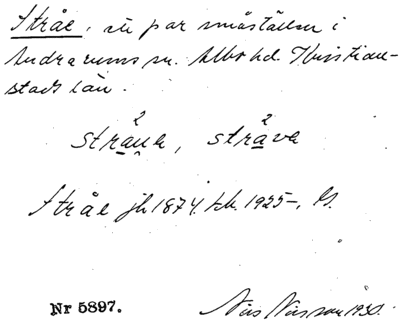 Stråe, ett par småställen i
Andrarums sn. Albo hd. Kristian-
stads län.
2 2
stråu̯e, stråve
Stråe jb 1874. kk. 1925–, G.
Nr 5897. Nils Nilsson 1930.